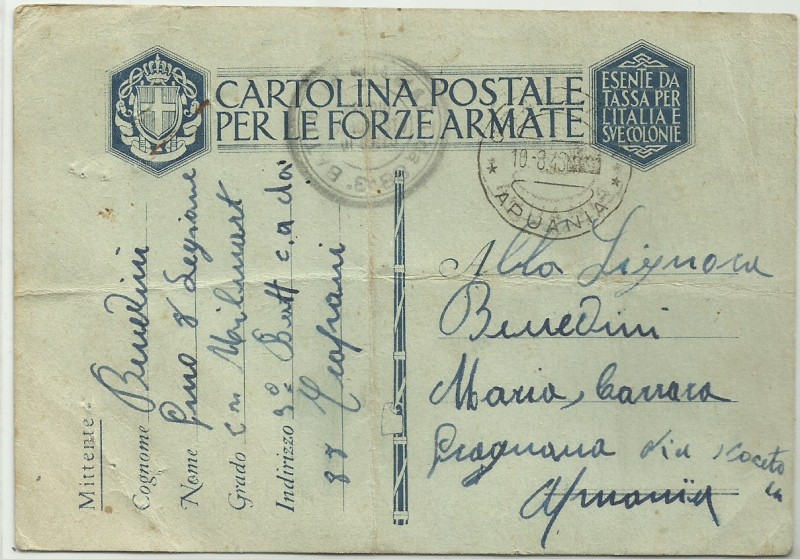 CARTOLINA POSTALE
PER LE FORZE ARMATE
ESENTE DA
TASSA PER
L'ITALIA E
SVE COLONIE
APUANIA
Mittente:
Cognome Benedini
Nome Gino 8ª Legione
Grado Milmart
Indirizzo 3º Batt c. a da
87 Trapani
Alla Signora
Benedini
Maria, Carrara
Gragnana Via
Apuania